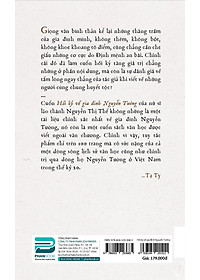 Giọng văn bình thản kể lại những thăng trầm
của gia đình mình, không thêm, không bớt,
không khoe khoang tô điểm, cũng chẳng cần che
giấu những cơ cực do Định mệnh an bài. Chính
cái đó đã làm cuốn hồi ký tăng giá trị chẳng
những ở phần nội dung, mà còn là sự đánh giá về
tấm lòng ngay thẳng của tác giả khi viết về những
người cùng chung huyết tộc!
Cuốn Hồi ký về gia đình Nguyễn Tường của nữ sĩ
lão thành Nguyễn Thị Thế không những là một
tài liệu chính xác nhất về gia đình Nguyễn
Tường, nó còn là một cuốn sách văn học được
viết ngoài văn chương. Chính vì vậy, tuy tác
phẩm chỉ trên 200 trang mà có sức nặng của cả
một dòng sông lịch sử văn học cũng như chính
trị qua dòng họ Nguyễn Tường ở Việt Nam
trong thế kỷ 20.
_Tạ Tỵ
PHANBOOK
Giá: 179.000đ